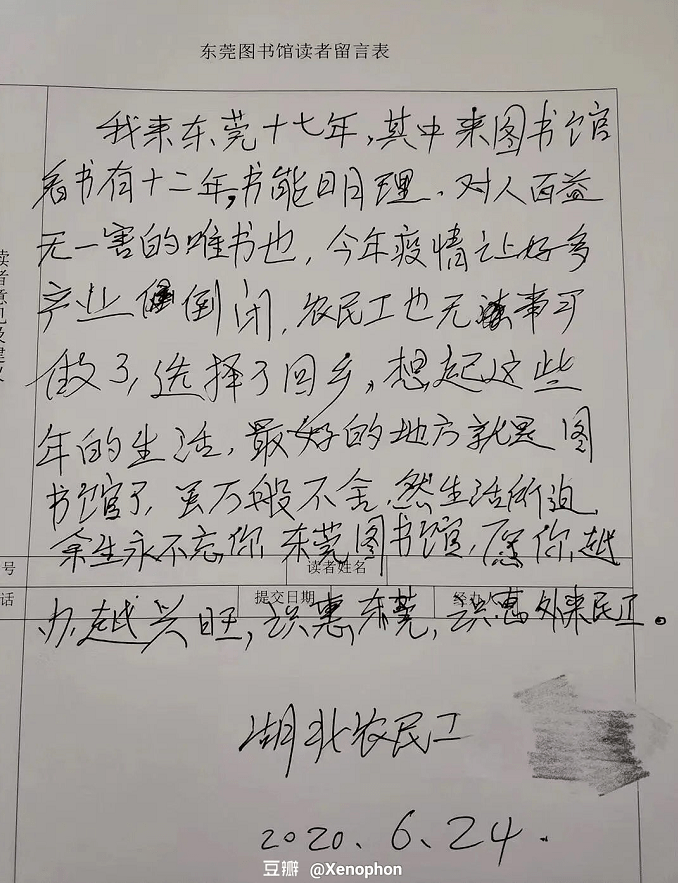 东莞图书馆读者留言表
我来东莞十七年,其中来图书馆
看书有十二年,书能明理、对人百益
无一害的唯书也,今年疫情让好多
产业倒闭,农民工也无事可
做了,选择了回乡,想起这些
年的生活,最好的地方就是图
书馆了,虽万般不舍,然生活所迫,
余生永不忘你,东莞图书馆,愿你越
办越兴旺,识惠东莞,识惠外来民工。
湖北农民工
2020、6、24.
读者意见及建议
号
读者姓名
话
提交日期
经办
豆瓣 @Xenophon